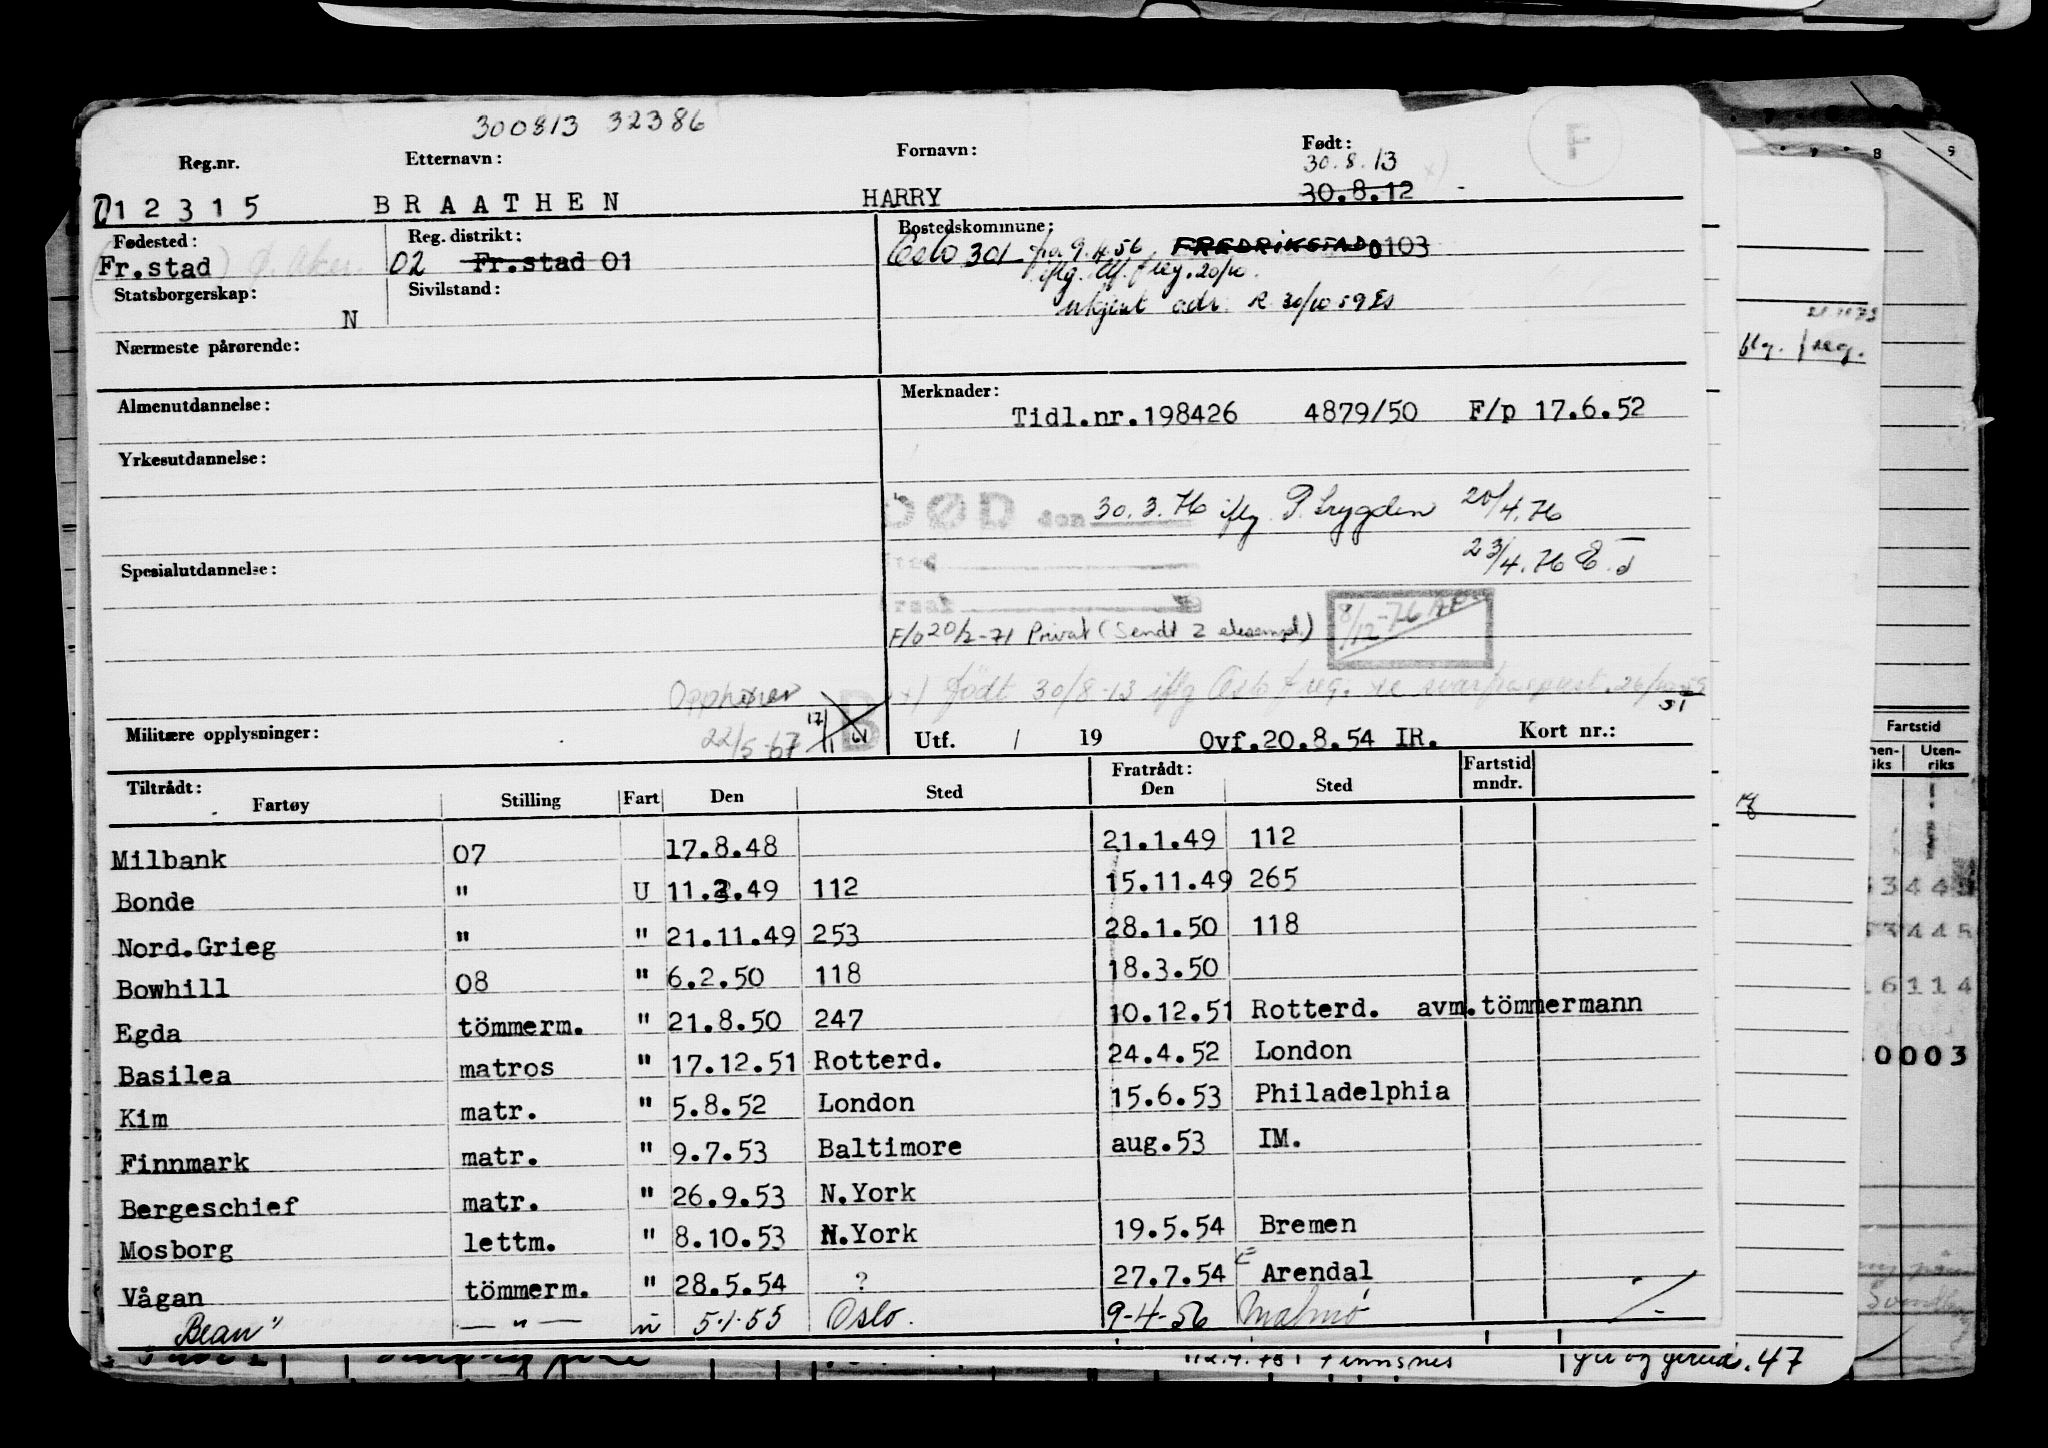 300813 32386
Reg.nr. Etternavn: Fornavn: Født:
30.8.13 x)
012315 BRAATHEN HARRY 30.8.12
F
Fødested: Reg. distrikt: Bostedskommune:
Fr.stad 02 Fr.stad 01 Oslo 301 fra 9.4.56 FREDRIKSTAD 0103
iflg. freg. 20/10.
Statsborgerskap: Sivilstand:
N
ukjent adr. R 30/10 59
Nærmeste pårørende:
Almenutdannelse: Merknader:
Tidl.nr.198426 4879/50 F/p 17.6.52
Yrkesutdannelse:
DØD den 30.3.76 iflg. P. Trygden 20/4.76
23/4.76
Spesialutdannelse:
F/o 20/2-71 Privat (Sendt 2 eksempl.)
8/12-76
x) Født 30/8-13 iflg Oslo freg.
Opphører
22/5-67
B
Militære opplysninger: Utf. / 19 Ovf.20.8.54 IR. Kort nr.:
Tiltrådt: Fratrådt: Fartstid
Fartøy Stilling Fart Den Sted Den Sted mndr.
Milbank 07 17.8.48 21.1.49 112
Bonde " U 11.2.49 112 15.11.49 265
Nord.Grieg " " 21.11.49 253 28.1.50 118
Bowhill 08 " 6.2.50 118 18.3.50
Egda tömmerm. " 21.8.50 247 10.12.51 Rotterd. avm.tömmermann
Basilea matros " 17.12.51 Rotterd. 24.4.52 London
Kim matr. " 5.8.52 London 15.6.53 Philadelphia
Finnmark matr. " 9.7.53 Baltimore aug.53 IM.
Bergeschief matr. " 26.9.53 N.York
Mosborg lettm. " 8.10.53 N.York 19.5.54 Bremen
Vågan tömmerm. " 28.5.54 ? 27.7.54 Arendal
Bean" — " — u 5.1.55 Oslo. 9-4-56 Malmø
Finnsnes
.47
21 11 73
flg. freg.
8 9
Fartstid
Uten-
riks
16114
0003